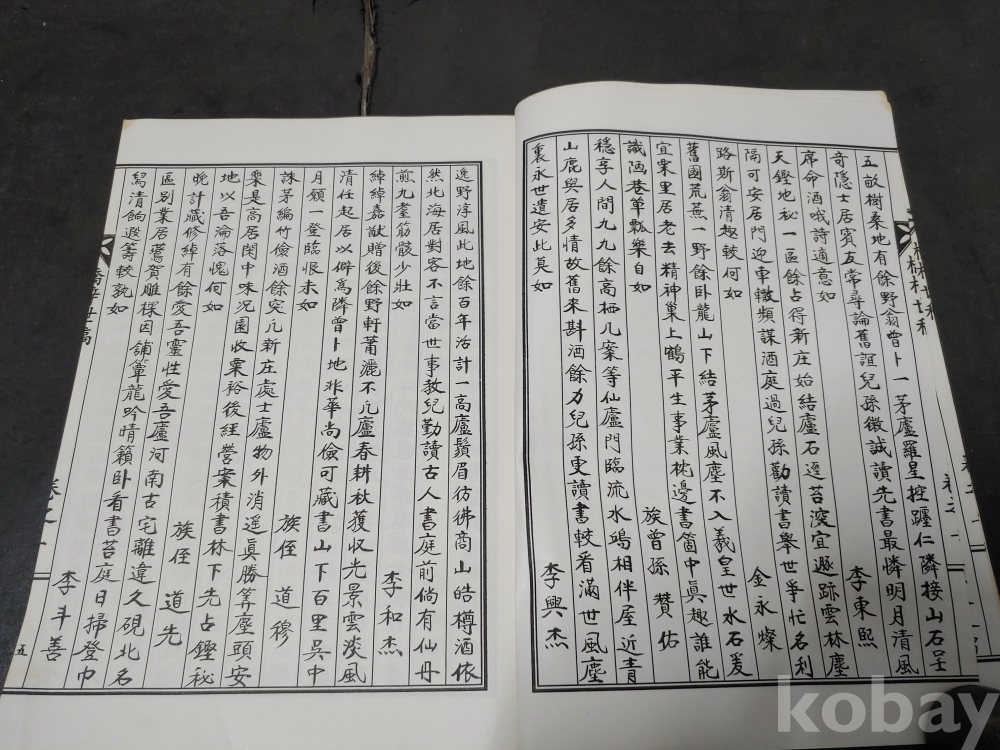 五畝樹桑地有餘野翁曾卜一茅廬羅星控躔仁隣接山石呈
奇隱士居賓友常尋論舊誼兒孫徵誠讀先書最憐明月清風
席命酒哦詩適意如 李東熙
天鏗地秘一區餘占得新庄始結廬石逕苔深宜遯跡雲林塵
隔可安居門迎車轍頻謀酒庭過兒孫勸讀書舉世爭忙名利
路斯翁清趣較何如 金永燦
舊國荒蕪一野餘臥龍山下結茅廬風塵不入羲皇世水石爰
宜栗里居老去精神巢上鶴平生事業枕邊書箇中眞趣誰能
識陋巷簞瓢樂自如 族曾孫 贊佑
穩享人間九九餘高栖几案等仙廬門臨流水鷗相伴屋近青
山鹿與居多情故舊來斟酒餘力兒孫更讀書較看滿世風塵
裏永世遺安此莫如 李興杰
逸野淳風此地餘百年活計一高廬鬚眉彷彿商山皓樽酒依
然北海居對客不言當世事教兒勤讀古人書庭前倘有仙丹
煎九耋筋骸少壯如 李和杰
綽綽嘉猷贈後餘野軒莆灑不凡廬春耕秋穫收光景雲淡風
清任起居以僻爲隣曾卜地非華尚儉可藏書山下百里吳中
月願一登臨恨未如 族侄 道穆
誅茅編竹儉酒餘突兀新庄處士廬物外消遥眞勝筭塵頭安
樂是高居閑中味況園收栗裕後經營案積書林下先占鏗秘
地以吾淪落愧何如 族侄 道先
晩計藏修綽有餘愛吾靈性愛吾廬河南古宅離違久硯北名
區別業居鷰賀雕樑因舖簟龍吟晴籟臥看書苔庭日掃登巾
舄清餉遐籌較孰如 李斗善
卷之一
五
kobay